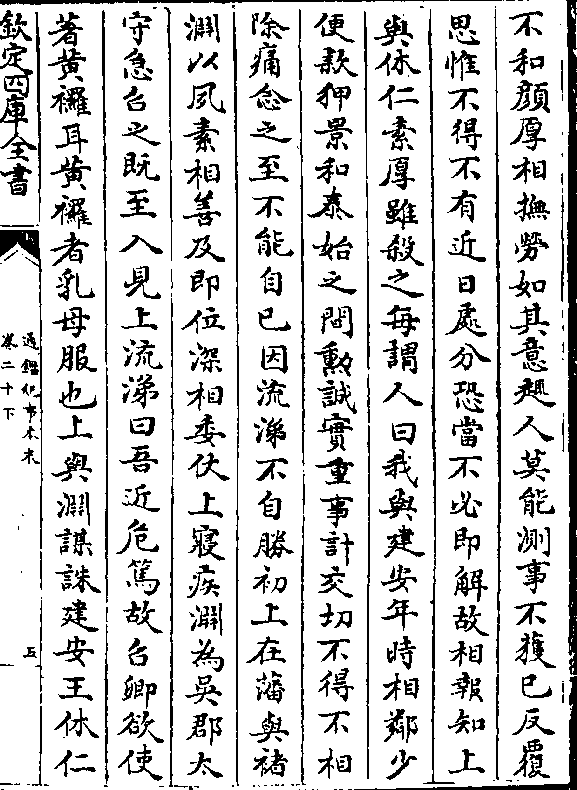 不和顏厚相撫勞如其意趣人莫能測事不獲已反覆
思惟不得不有近日處分恐當不必即解故相報知上
與休仁素厚雖殺之每謂人曰我與建安年時相鄰少
便款狎景和泰始之間勳誠實重事計交切不得不相
除痛念之至不能自已因流涕不自勝初上在藩與褚
淵以風素相善及即位深相委仗上寢疾淵為吳郡太
守急召之既至入見上流涕曰吾近危篤故召卿欲使
著黄襬耳黄襬者乳母服也上與淵謀誅建安王休仁
欽定四庫全書
通鑑紀事本末
卷二十下
五